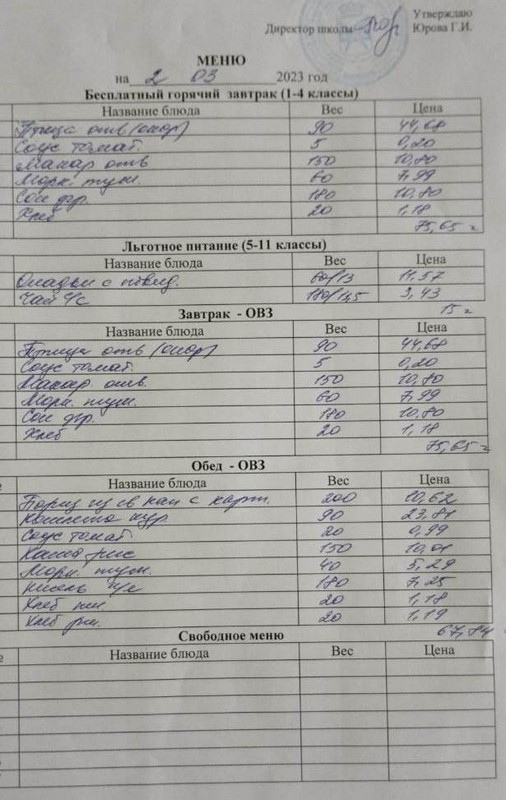 Утверждаю
Директор школы Юрова Г.И.
МЕНЮ
на 2 03 2023 год
Бесплатный горячий завтрак (1-4 классы)
Название блюда Вес Цена
Птица отв (окор) 90 44,68
Соус томат. 5 0,20
Макар отв 150 10,80
Морк. туш. 60 7,99
Сок фр. 180 10,80
Хлеб 20 1,18
75,65
Льготное питание (5-11 классы)
Название блюда Вес Цена
Оладьи с повид. 60/13 11,57
Чай 180/14,5 3,43
15
Завтрак - ОВЗ
Название блюда Вес Цена
Птица отв (окор) 90 44,68
Соус томат. 5 0,20
Макар отв. 150 10,80
Морк. туш. 60 7,99
Сок фр. 180 10,80
Хлеб 20 1,18
75,65
Обед - ОВЗ
Название блюда Вес Цена
Борщ из св кап с карт. 200 10,62
Котлета кур. 90 23,81
Соус томат 20 0,99
Каша рис 150 10,01
Морк. туш. 40 5,29
Кисель 180 7,25
Хлеб пш. 20 1,18
Хлеб рж. 20 1,19
67,84
Свободное меню
Название блюда Вес Цена